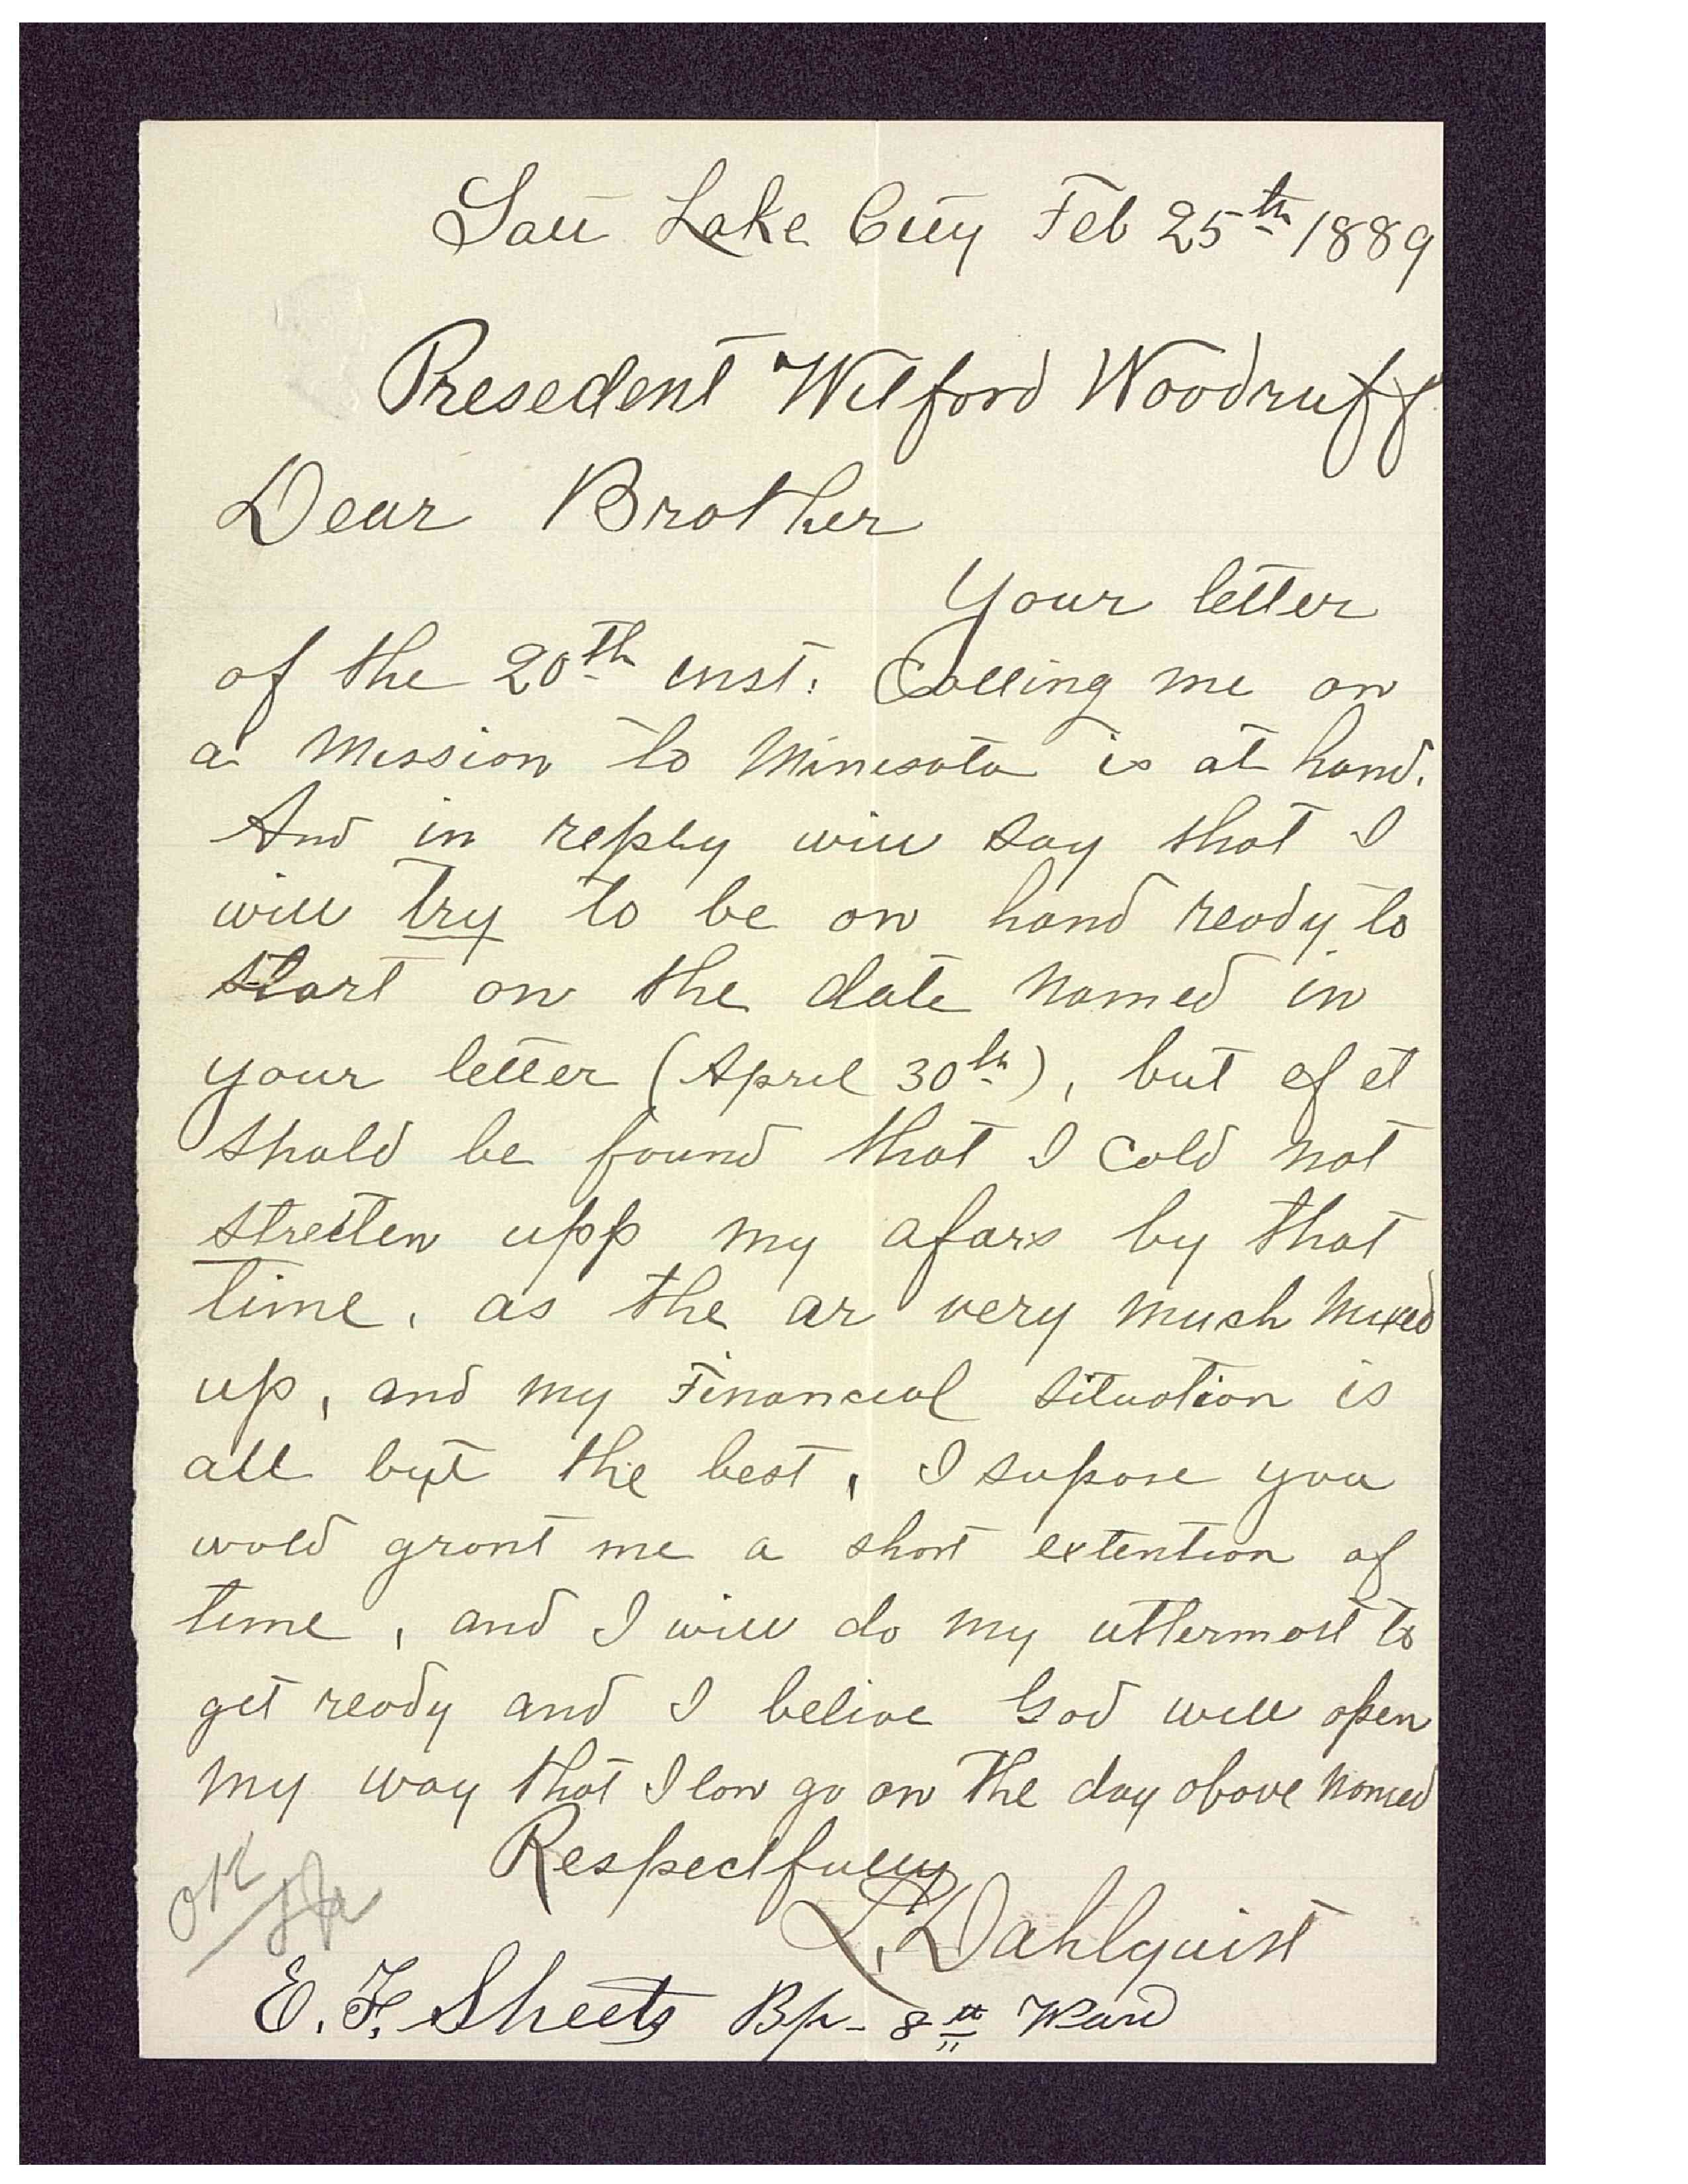 Salt Lake City Feb 25th 1889
Presedent Wilford Woodruff
Dear Brother
Your letter
of the 20th inst. Calling me on
a Mission to Minesota is at hand.
And in reply will say that I
will try to be on hand ready to
start on the date named in
your letter (April 30th), but if it
shuld be found that I cold not
streiten upp my afars by that
time, as the ar very much mixed
up, and my Financial situation is
all but the best, I supose you
wold grant me a short extention of
time, and I will do my uttermost to
get ready and I belive God will open
my way that I can go on the day above named
Respectfully
L. Dahlquist
OK
E. F. Sheets Bp - 8th Ward